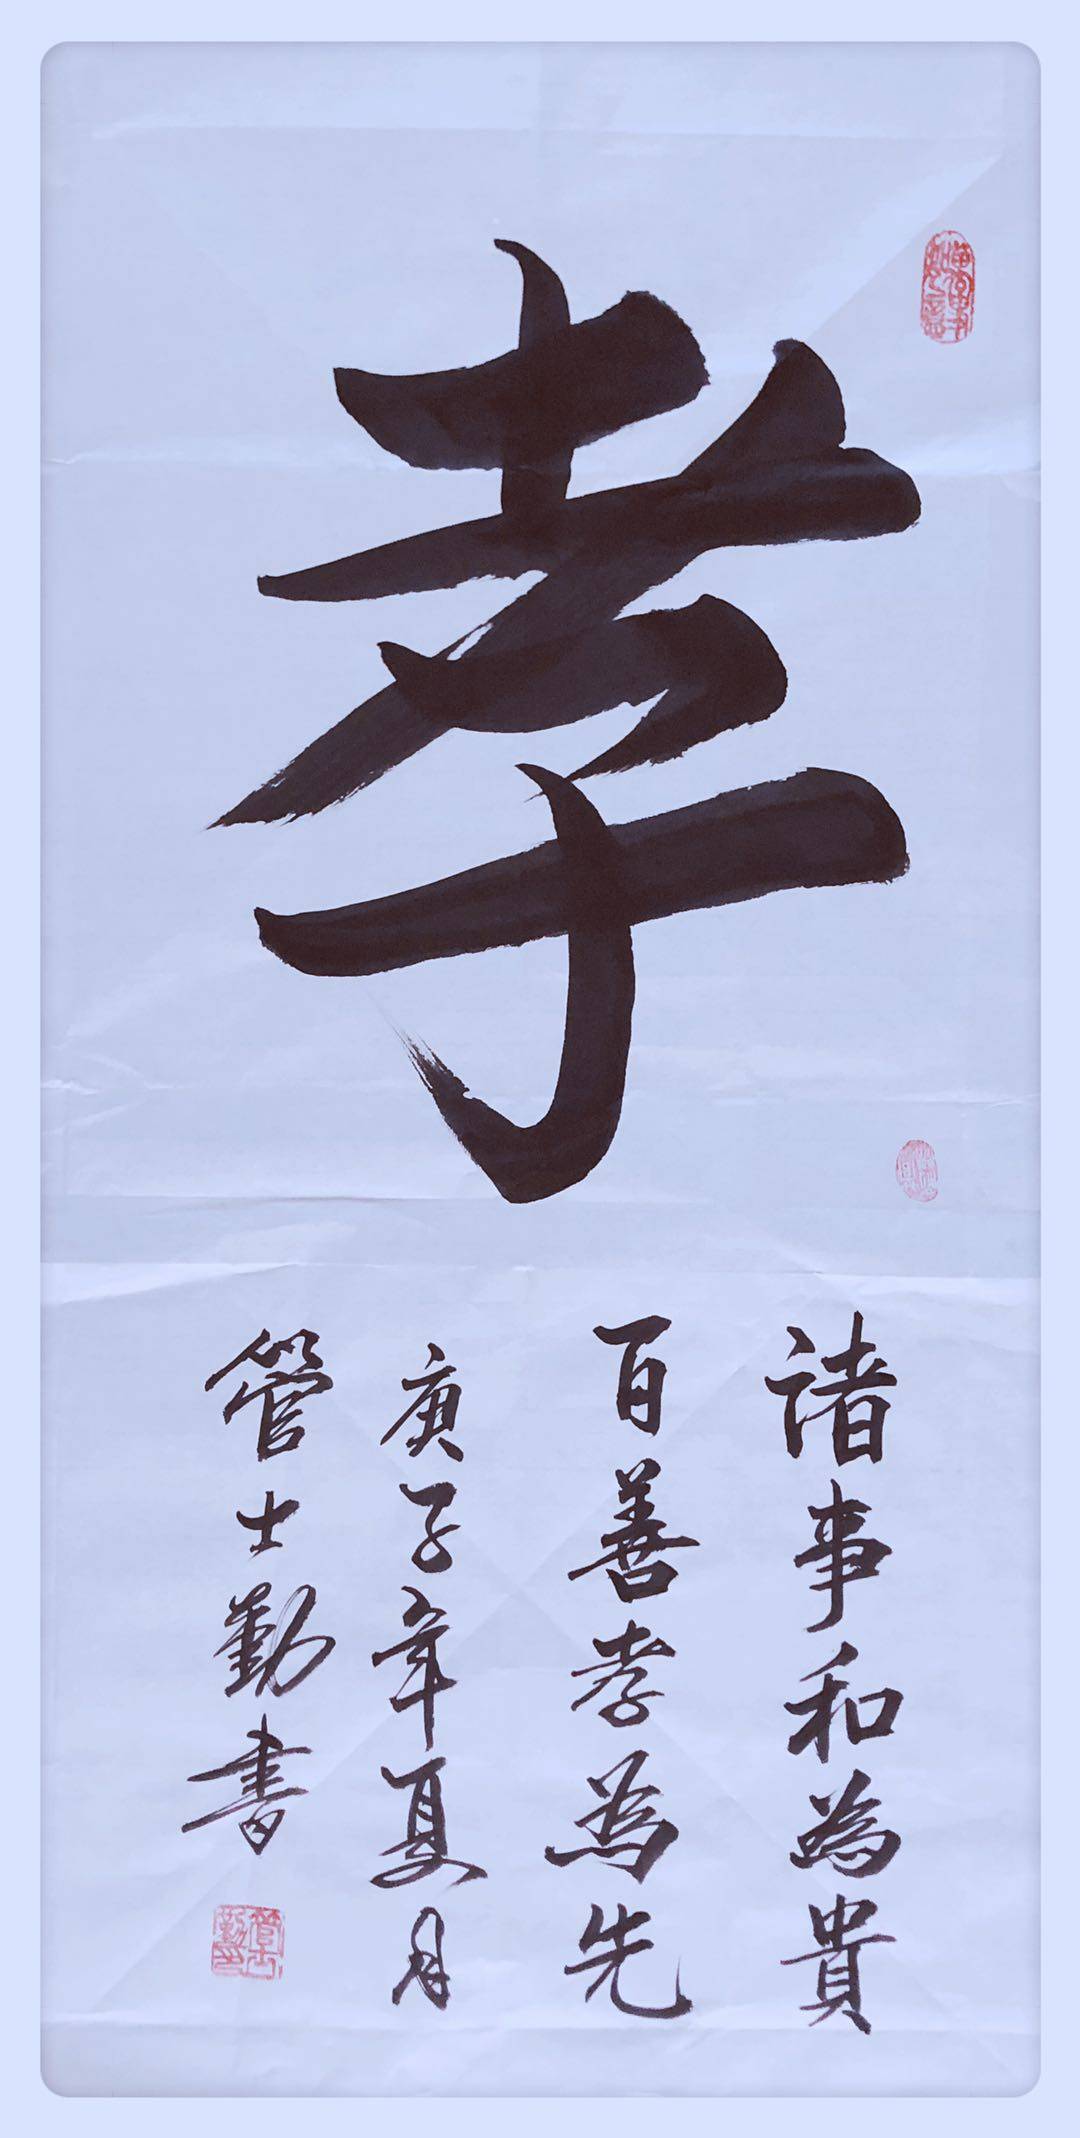 孝
諸事和為貴
百善孝為先
庚子年夏月
管士勤書